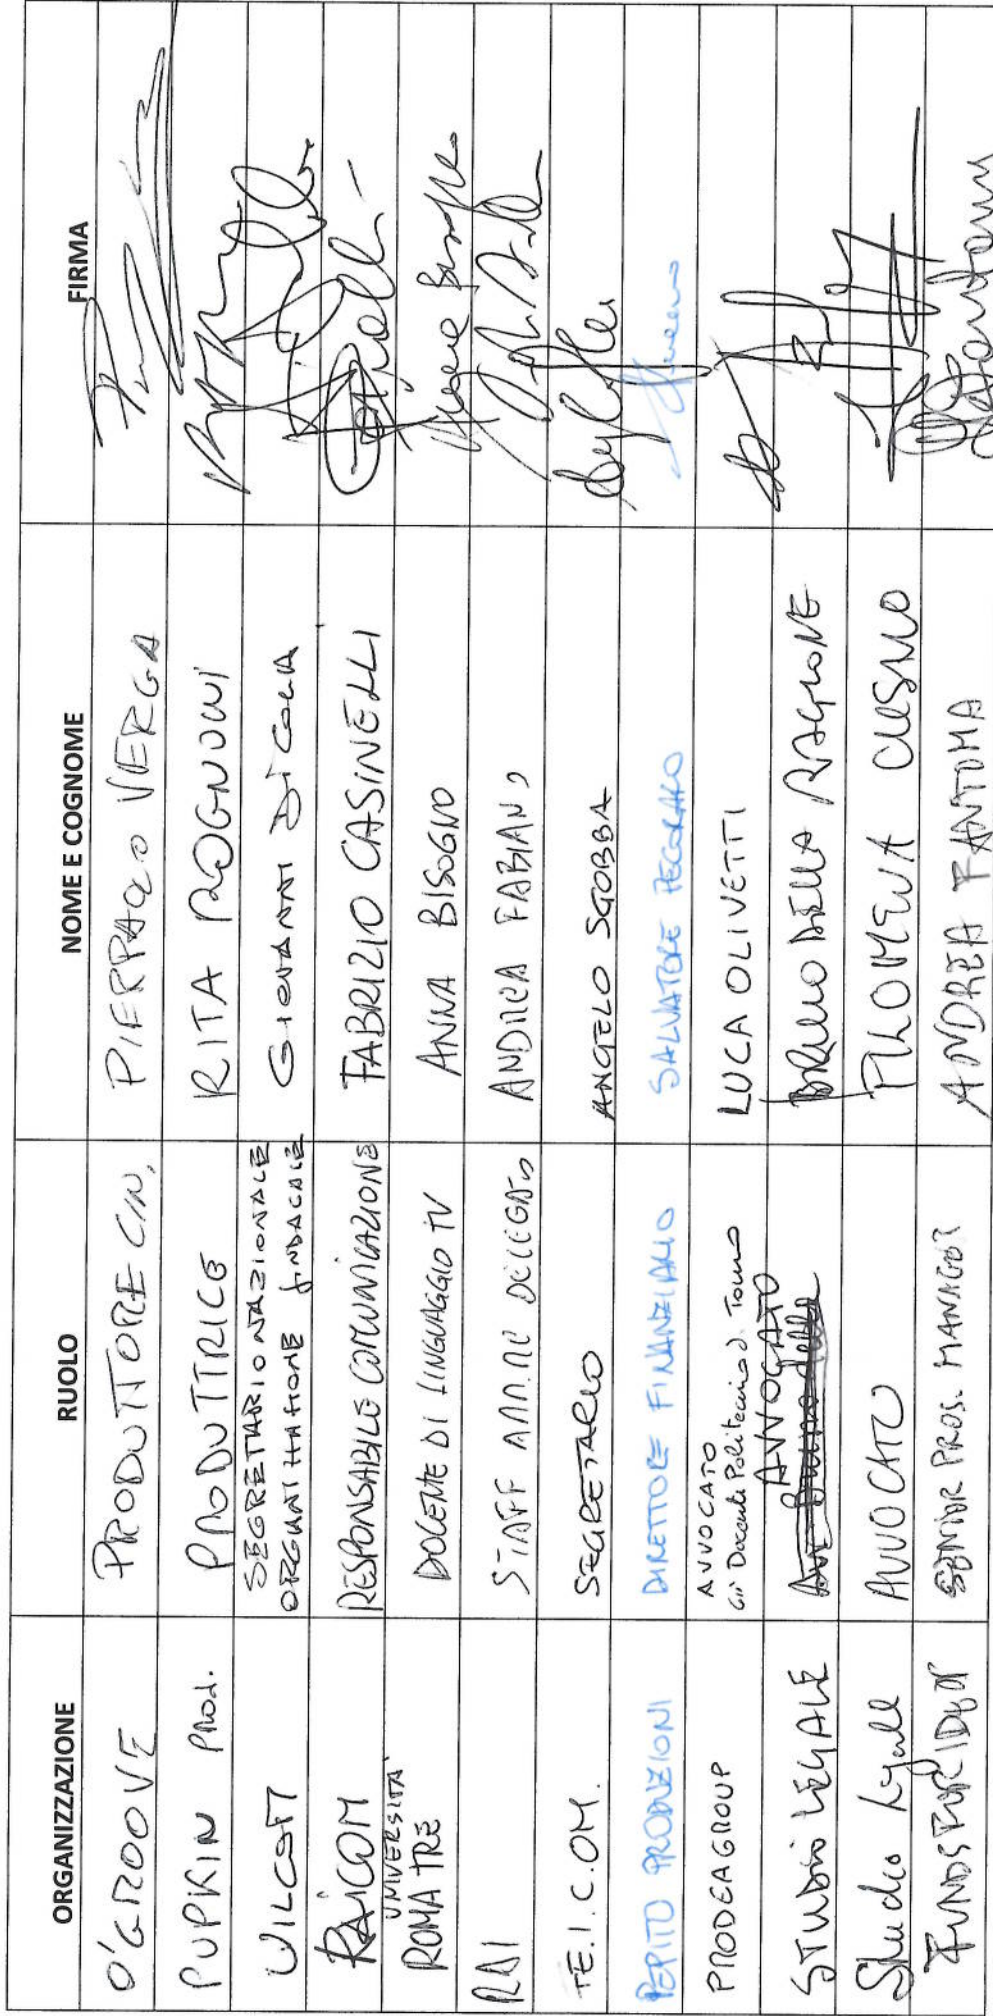 ORGANIZZAZIONE RUOLO NOME E COGNOME FIRMA
O'GROOVE PRODUTTORE CIN. PIERPAOLO VERGA
PUPKIN Prod. PRODUTTRICE RITA ROGNONI
UILCOM SEGRETARIO NAZIONALE
ORGANIZZAZIONE SINDACALE GIOVANNI DI COLA
RAICOM RESPONSABILE COMUNICAZIONE FABRIZIO CASINELLI
UNIVERSITÀ
ROMA TRE DOCENTE DI LINGUAGGIO TV ANNA BISOGNO
RAI STAFF AMM.RE DELEGATO ANDREA FABIANO
FE.I.C.OM. SEGRETARIO ANGELO SGOBBA
PEPITO PRODUZIONI DIRETTORE FINANZIARIO SALVATORE PECORARO
PRODEAGROUP AVVOCATO
Già Docente Politecnico di Torino LUCA OLIVETTI
STUDIO LEGALE AVVOCATO BRUNO DELLA RAGIONE
Studio Legale AVVOCATO FILOMENA CUSANO
FUNDSFORIDEAS SENIOR PROJ. MANAGER ANDREA FANTOMA